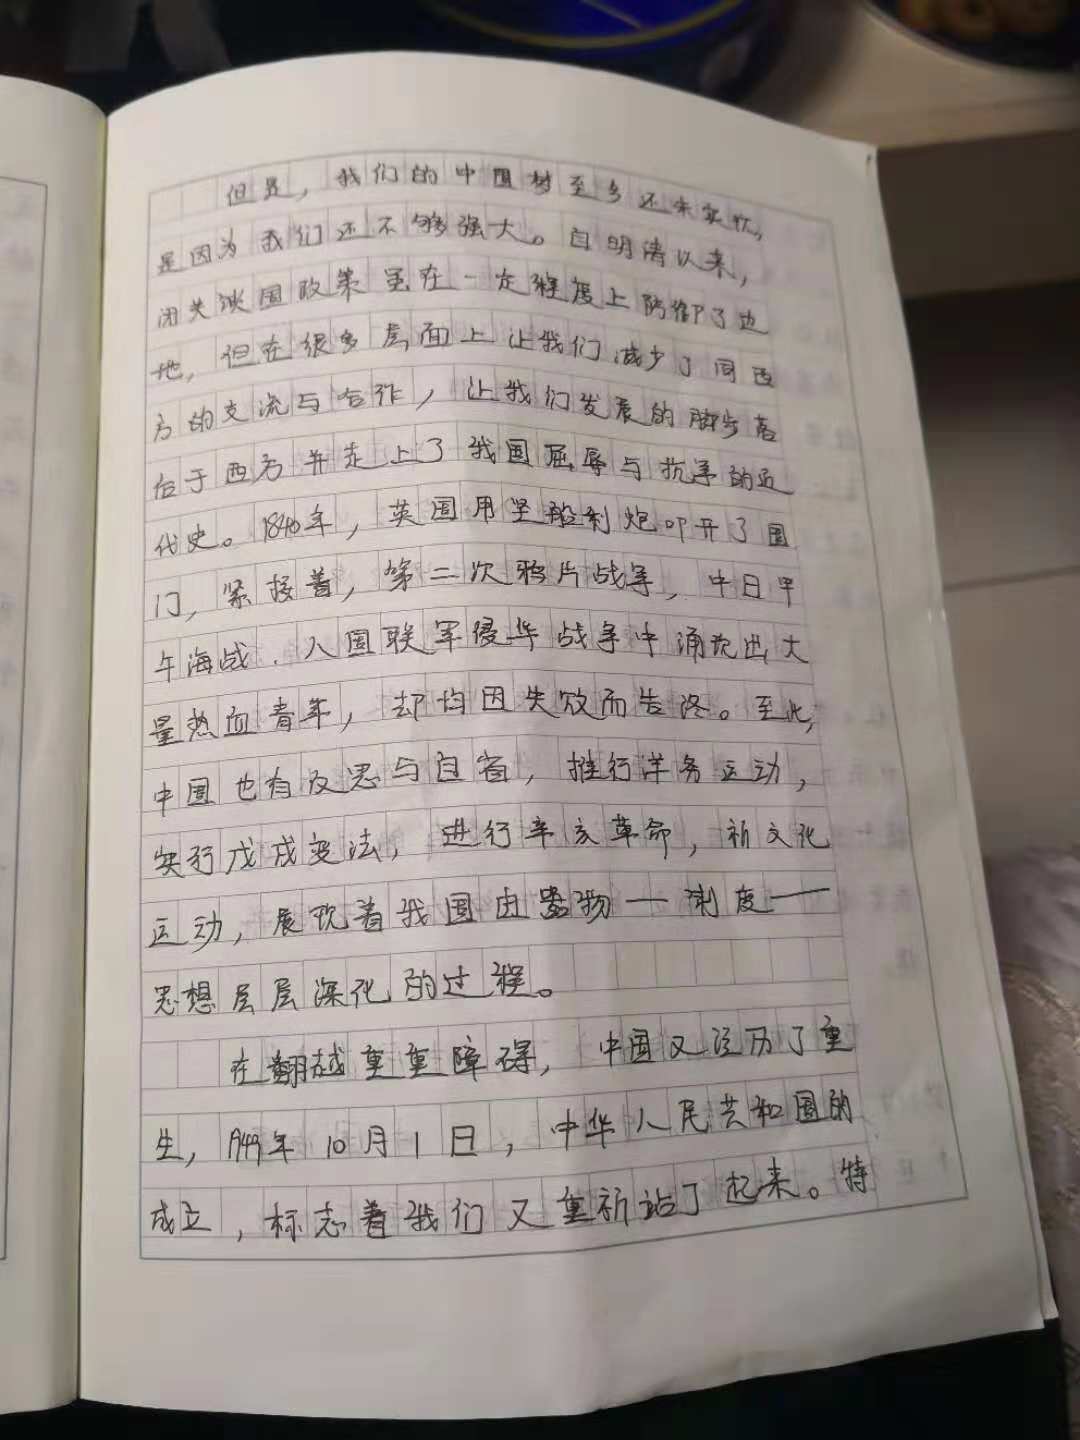 但是，我们的中国梦至今还未实现，
是因为我们还不够强大。自明清以来，
闭关锁国政策虽在一定程度上防御了边
地，但在很多层面上让我们减少了同西
方的交流与合作，让我们发展的脚步落
后于西方并走上了我国屈辱与抗争的近
代史。1840年，英国用坚船利炮叩开了国
门，紧接着，第二次鸦片战争，中日甲
午海战、八国联军侵华战争中涌现出大
量热血青年，却均因失败而告终。至此，
中国也有反思与自省，推行洋务运动，
实行戊戌变法，进行辛亥革命，新文化
运动，展现着我国由器物—制度—
思想层层深化的过程。
在翻越重重障碍，中国又经历了重
生，1949年10月1日，中华人民共和国的
成立，标志着我们又重新站了起来。特